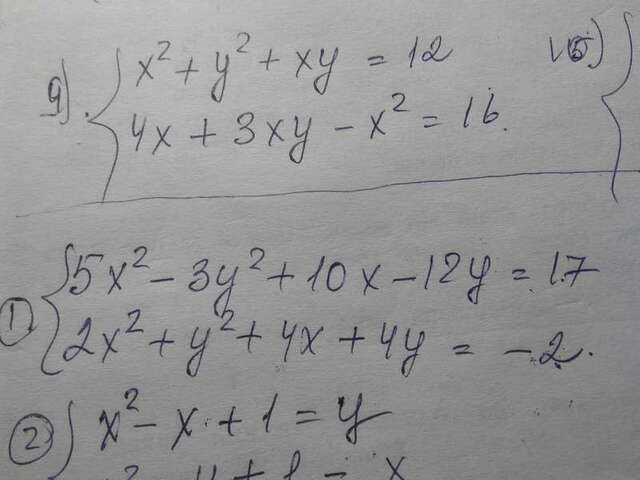 9). x² + y² + xy = 12
4x + 3xy - x² = 16.
① 5x² - 3y² + 10x - 12y = 17
2x² + y² + 4x + 4y = -2.
② x² - x + 1 = y